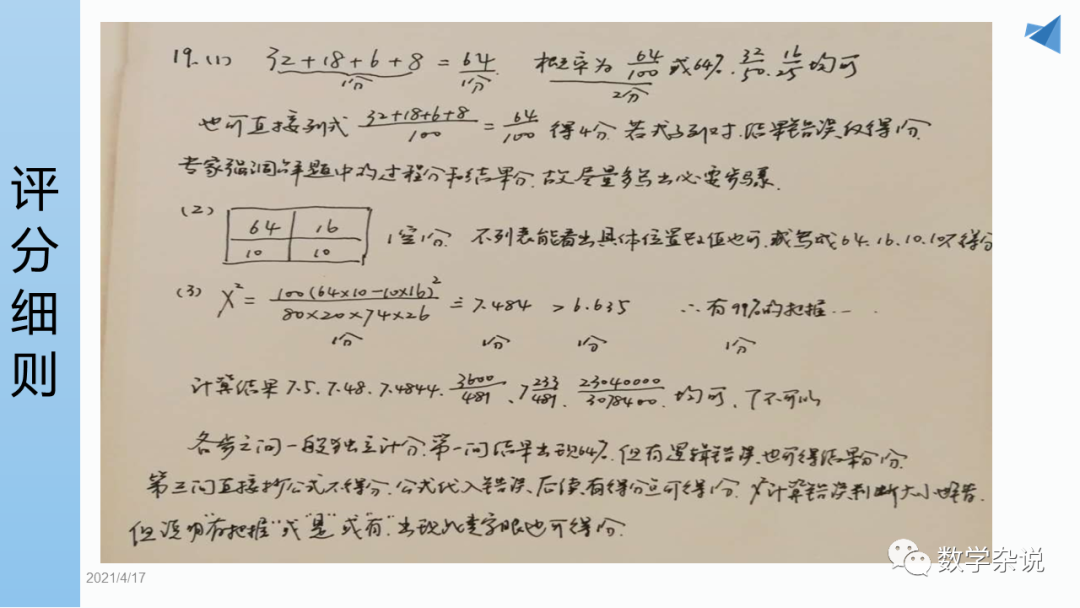 评分细则
19.(1) 32+18+6+8 = 64 概率为 64/100 或64%. 32/50. 16/25 均可
1分 1分 2分
也可直接列式 (32+18+6+8)/100 = 64/100 得4分. 若式子列对. 结果错误仅得1分.
专家强调解题中的过程分和结果分. 故尽量多写出必要步骤.
(2) 64 16 1空1分. 不列表能看出具体位置取值也可. 或写成64.16.10.10不得分
10 10
(3) X² = 100(64×10-10×16)²/(80×20×74×26) ≐ 7.484 > 6.635 ∴有99%的把握……
1分 1分 1分 1分
计算结果 7.5. 7.48. 7.4844. 3600/481、7 233/481. 23040000/3078400. 均可. 7不可以
各步之间一般独立计分. 第一问结果出现64%. 但有逻辑错误. 也可得结果分1分.
第三问直接抄公式不得分. 公式代入错误. 后续有得分点可得1分. X²计算错误判断大小也错.
但说明"有把握"或"是"或"有". 出现此类字眼也可得1分.
2021/4/17
数学杂说